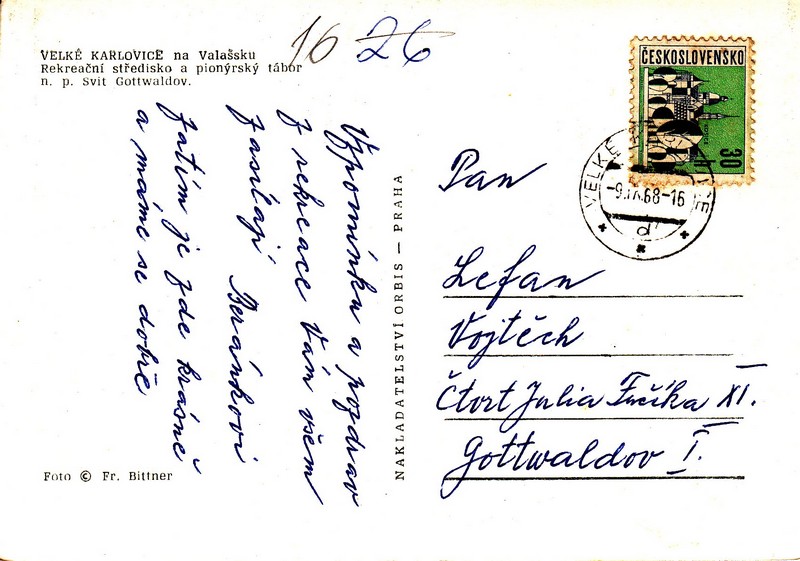 VELKÉ KARLOVICE na Valašsku
Rekreační středisko a pionýrský tábor
n. p. Svit Gottwaldov.
16 26
Vzpomínku a pozdrav
z rekreace Vám všem
zasílají Beránkovi
Zatím je zde krásně
a máme se dobře
Foto © Fr. Bittner
NAKLADATELSTVÍ ORBIS — PRAHA
ČESKOSLOVENSKO
30 h
VELKÉ
-9.IX.68-16
d
Pan
Lefan
Vojtěch
Čtvrt Julia Fučíka XI.
Gottwaldov I.